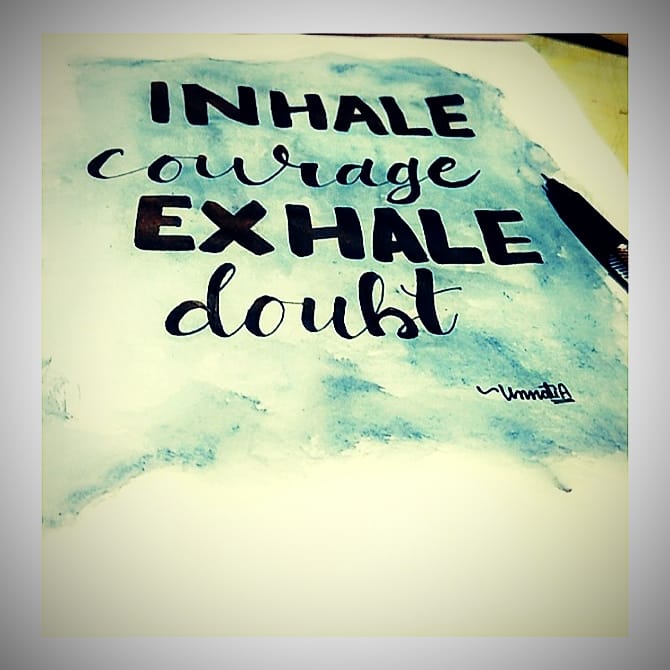 INHALE
courage
EXHALE
doubt
~UnnatIA